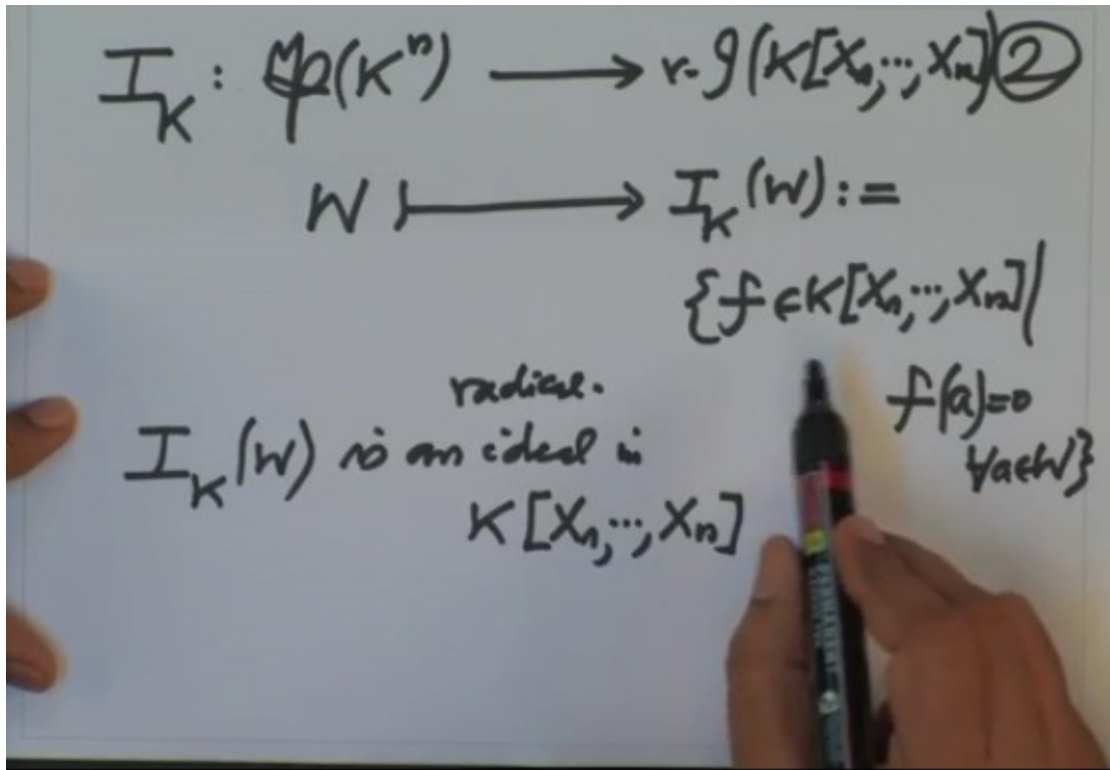 I_K : 𝔓(K^n) ⟶ r-𝓘(K[X_1,…,X_n]) ②
W ⟼ I_K(W) :=
{f ∈ K[X_1,…,X_n] |
f(a)=0
∀a∈W}
radical.
I_K(W) is an ideal in
K[X_1,…,X_n]